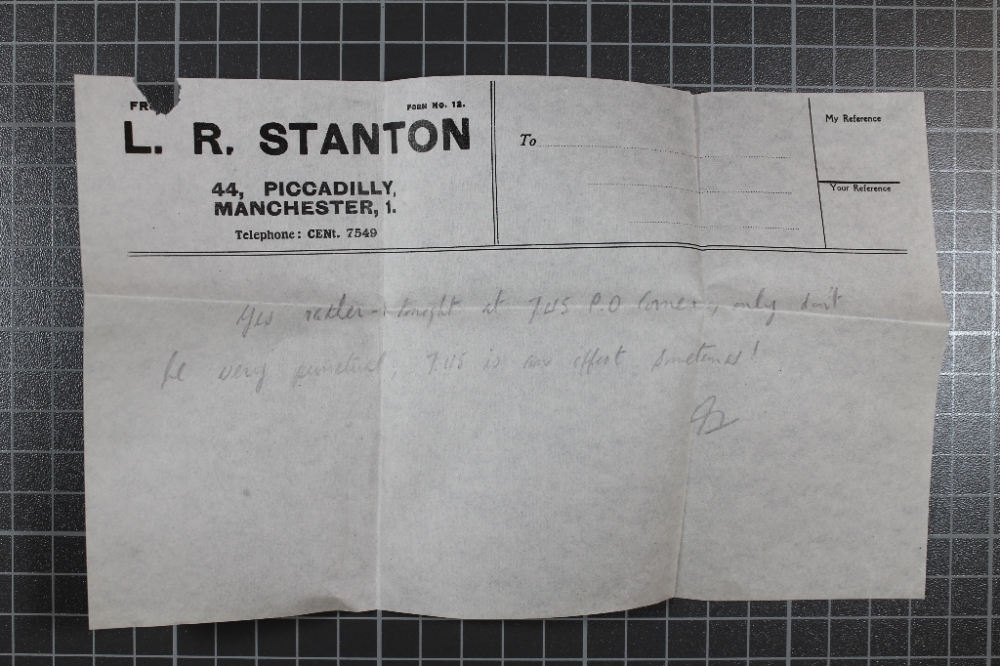 FR
FORM NO. 12.
L. R. STANTON
44, PICCADILLY,
MANCHESTER, 1.
Telephone: CENt. 7549
To
My Reference
Your Reference
Yes rather - tonight at 7.45 P.O Corner, only don't
be very punctual, 7.45 is an effort sometimes!